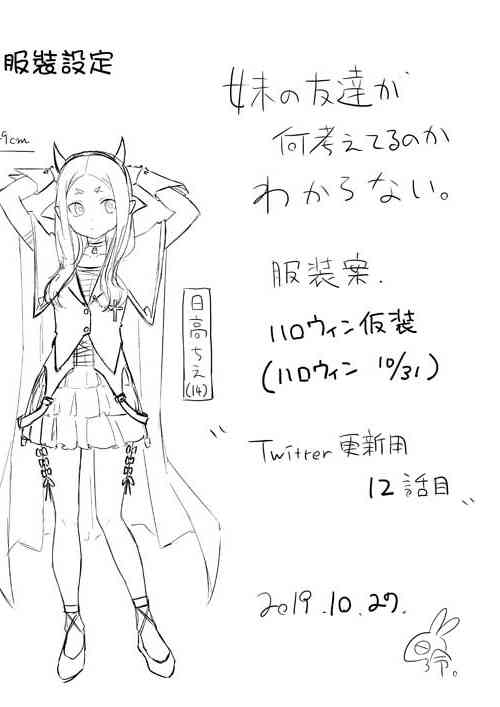 服裝設定
9cm
妹の友達が
何考えてるのか
わからない。
服装案.
ハロウィン仮装
(ハロウィン 10/31)
日高ちえ
(14)
Twitter更新用
12話目
2019.10.27.
令。